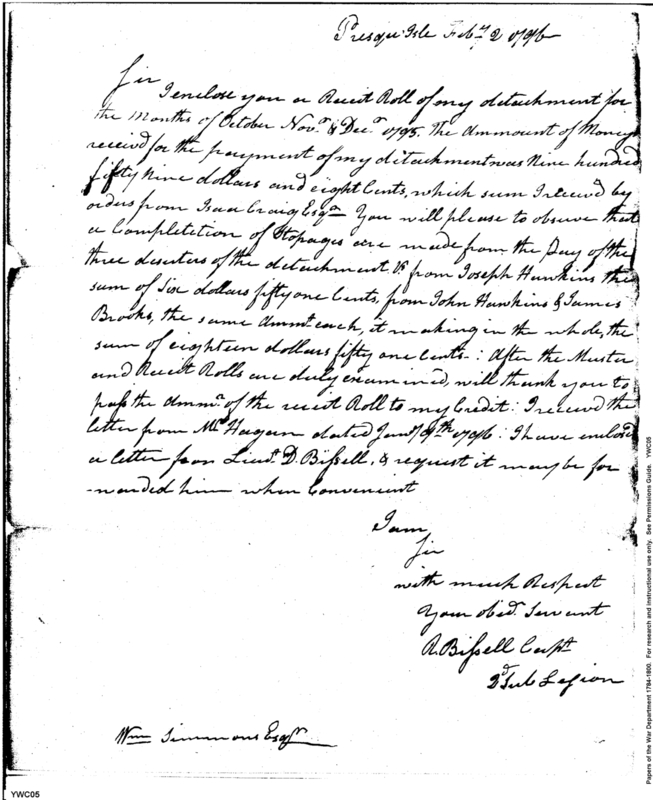 Presqu'Isle Feby. 2 1796
Sir
I enclose you a Receit Roll of my detachment for
the Months of October Novr. & Decr. 1795. The Ammount of Money
receivd for the payment of my detachment was Nine hundred
fifty Nine dollars and eight Cents, which sum I receivd by
orders from Isaac Craig Esqr. You will please to observe that
a Completion of Stopages are made from the Pay of the
three deserters of the detachment Vs from Joseph Hawkins the
sum of Six dollars fifty one Cents, from John Hawkins & James
Brooks, the same Ammt. each, it making in the whole, the
sum of eighteen dollars fifty one Cents—: After the Muster
and Receit Rolls are duly examined, will thank you to
pass the Ammt. of the receit Roll to my Credit: I receivd the
letter from Mr. Hagan dated Jany 9th 1796: I have enclosd
a letter from Lieut. D. Bissell, & request it may be for
-warded him when Convenient
I am
Sir
with much Respect
Your obed. Servant
R. Bissell Capt.
2d Sub Legion
Wm Simmons Esqr.
YWC05
Papers of the War Department 1784-1800. For research and instructional use only. See Permissions Guide. YWC05